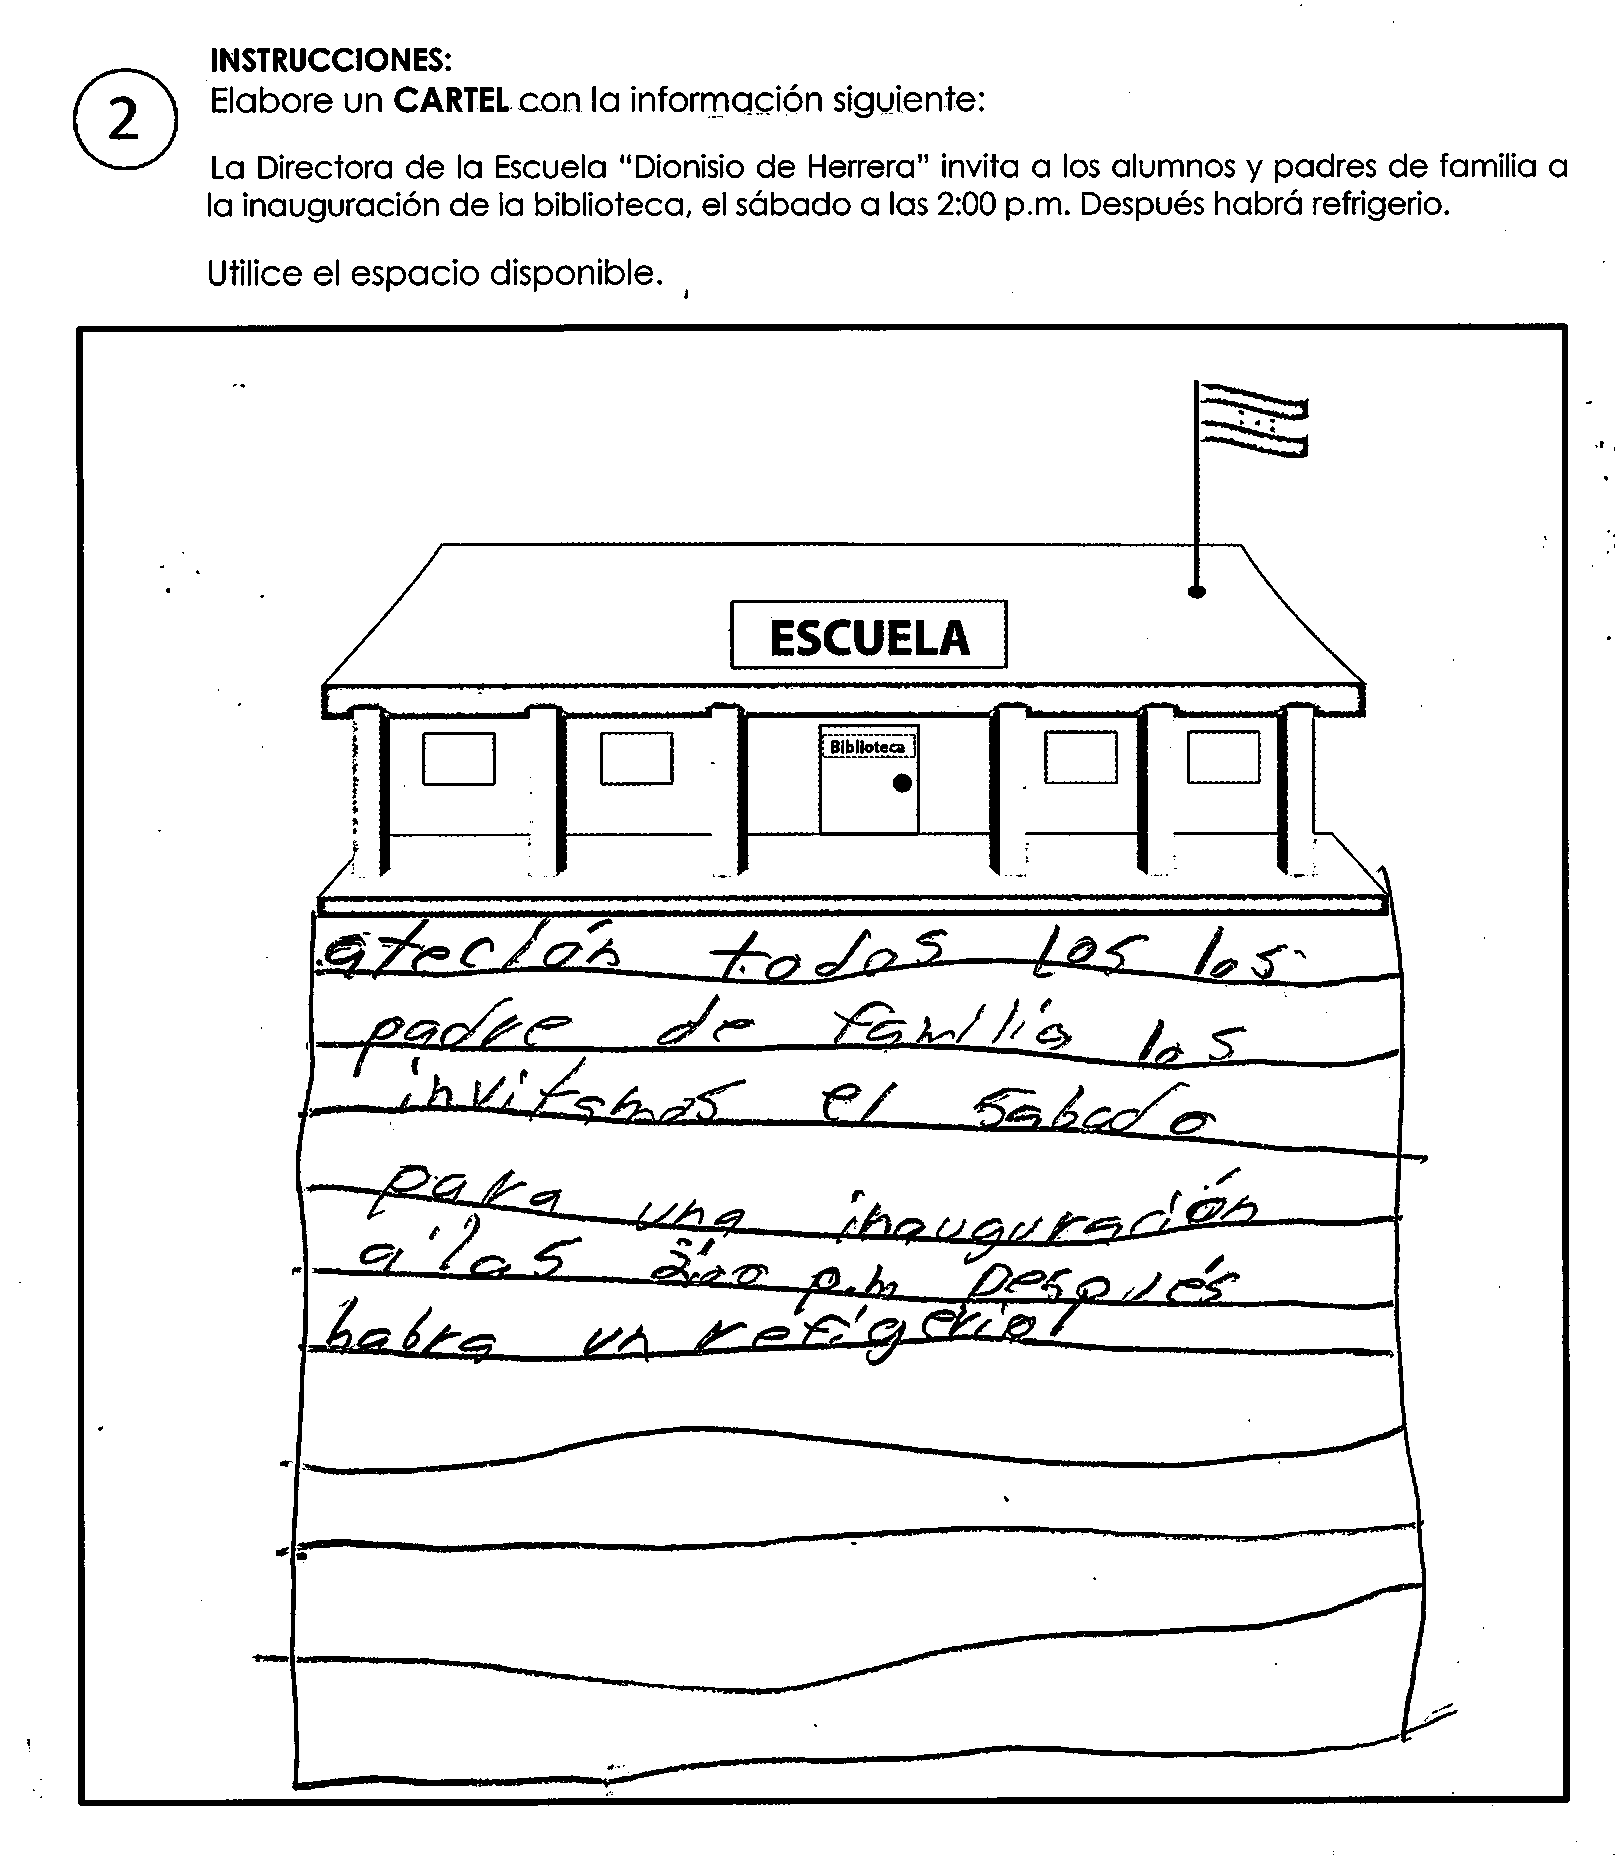 INSTRUCCIONES:
2
Elabore un CARTEL con la información siguiente:
La Directora de la Escuela "Dionisio de Herrera" invita a los alumnos y padres de familia a
la inauguración de la biblioteca, el sábado a las 2:00 p.m. Después habrá refrigerio.
Utilice el espacio disponible.
ESCUELA
Biblioteca
ateción todos los los
padre de familia los
invitamos el sabado
para una inauguración
a las 2:00 p.m Después
habra un refigerio